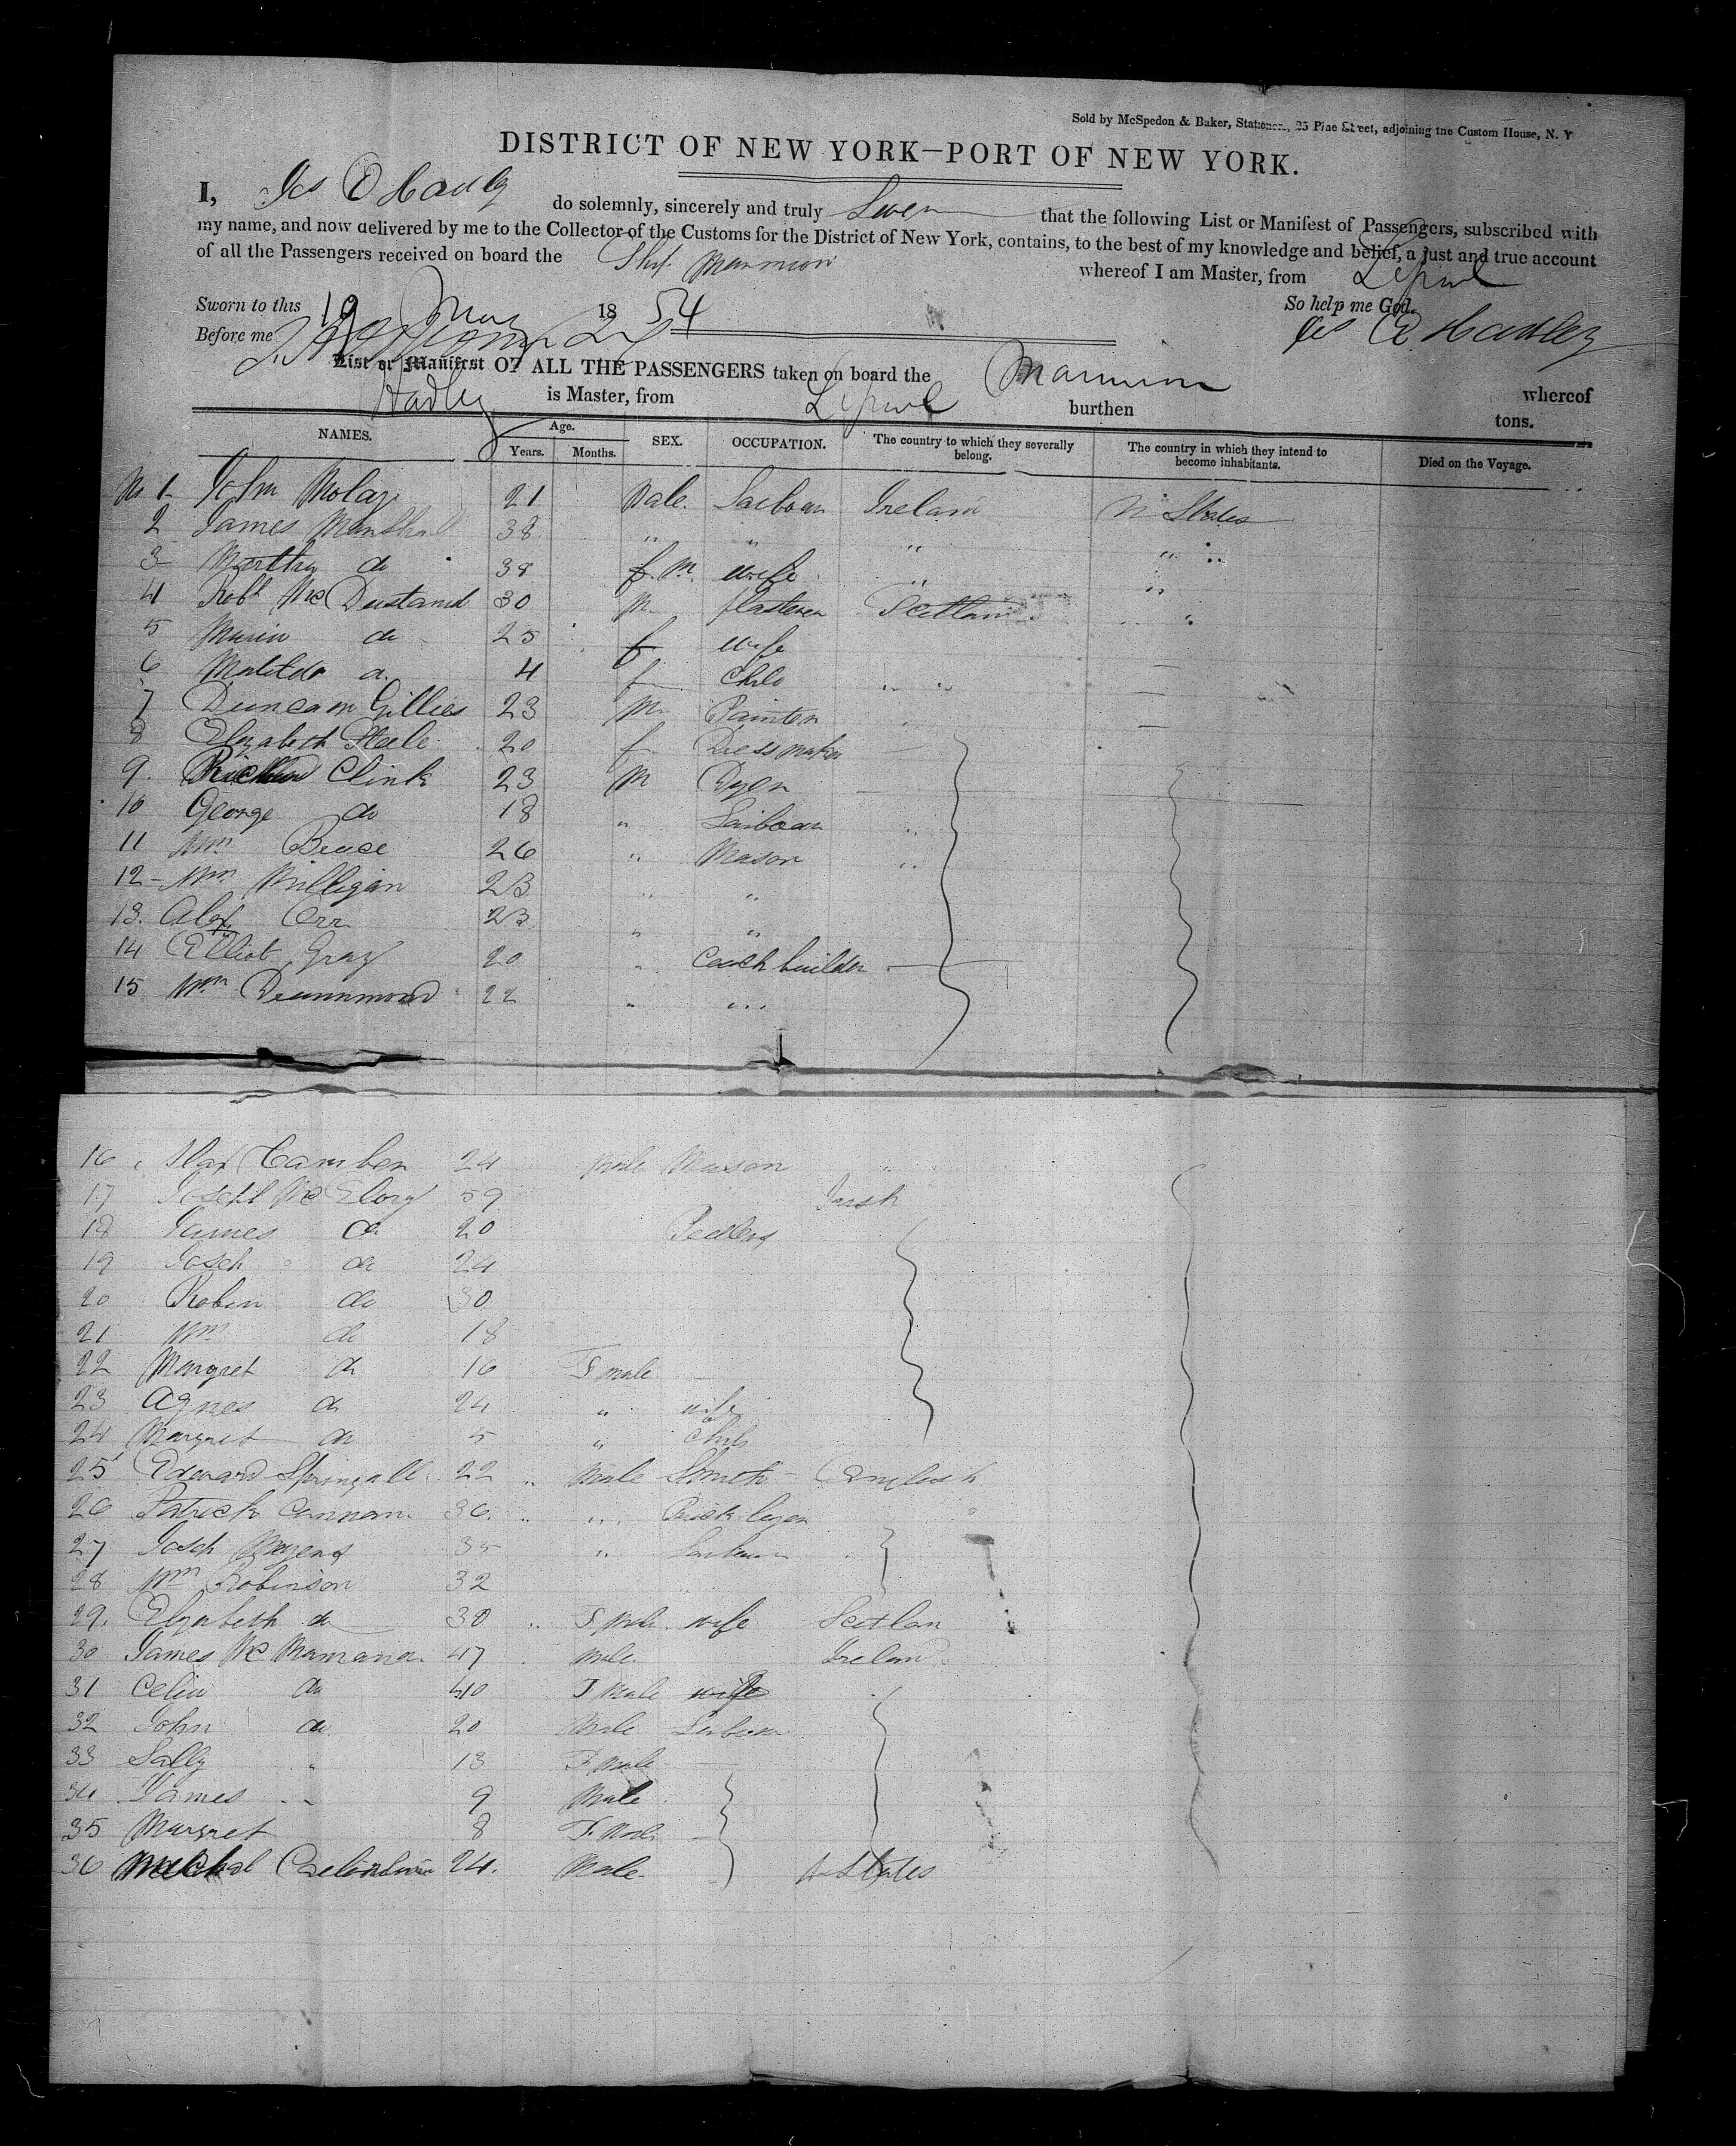 Sold by McSpedon & Baker, Stationers, 25 Pine Street, adjoining the Custom House, N. Y
DISTRICT OF NEW YORK—PORT OF NEW YORK.
I, Jas O Hadley do solemnly, sincerely and truly Swear that the following List or Manifest of Passengers, subscribed with
my name, and now delivered by me to the Collector of the Customs for the District of New York, contains, to the best of my knowledge and belief, a just and true account
of all the Passengers received on board the Ship Marmion whereof I am Master, from Lpool
Sworn to this 19 May 1854 So help me God.
Before me Hadley
List or Manifest OF ALL THE PASSENGERS taken on board the Marmion whereof
Hadley is Master, from Lpool burthen tons.
NAMES. Age. Years. Months. SEX. OCCUPATION. The country to which they severally belong. The country in which they intend to become inhabitants. Died on the Voyage.
1 John 21 Male. Ireland States
2 James Marshall 38 " " " "
3 Martha do 38 f.m. wife " "
4 Robt Mc 30 M. plasterer Scotland "
5 do 25 f wife
6 Matilda d. 4 f Child " "
7 Duncan Gillies 23 M. Painter
8 Elizabeth Steele 20 f Dress maker
9. Clink 23 M Dyer
10 George do 18 "
11 Wm Bruce 26 " Mason
12 Wm Milligan 23 " "
13. Alex Orr 23 " "
14 Elliot Gray 20 " Coach builder
15 Wm Drummond 22 " "
16 24 male Mason
17 Joseph Mc Elory 59 Irish
18 James do 20 Pedlers
19 Joseh do 24
20 Robin do 30
21 Wm do 18
22 Margret do 16 F male
23 Agnes do 24 " wife
24 Margret do 5 " Child
25 Edward Springall 22 " male Smith English
26 Patrick Cannan. 36. " "
27 Joseh 35 "
28 Wm Robinson 32
29. Elizabeth do 30 " F male wife Scotlan
30 James Mc 47 male Ireland
31 Celia do 40 F male wife
32 John do 20 Male
33 Sally " 13 F male
34 James " 9 Male
35 Margret 8 F male
36 24. Male States